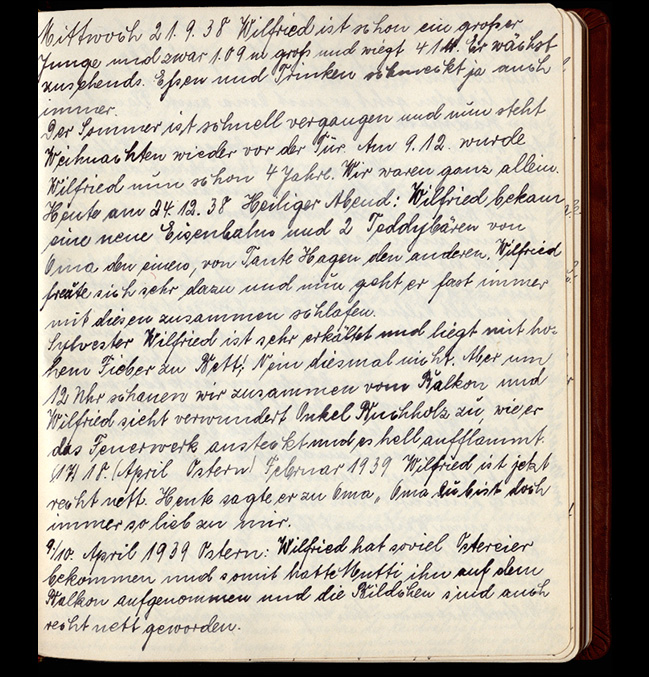 Mittwoch 21.9.38 Wilfried ist schon ein großer
Junge und zwar 1.09 m groß und wiegt 41 ℔. Er wächst
zusehends. Essen und Trinken schmeckt ja auch
immer.
Der Sommer ist schnell vergangen und nun steht
Weihnachten wieder vor der Tür. Am 9.12. wurde
Wilfried nun schon 4 Jahre. Wir waren ganz allein.
Heute am 24.12.38 Heiliger Abend: Wilfried bekam
eine neue Eisenbahn und 2 Teddybären von
Oma den einen, von Tante Hagen den anderen. Wilfried
freute sich sehr dazu und nun geht er fast immer
mit diesen zusammen schlafen.
Sylvester Wilfried ist sehr erkältet und liegt mit ho-
hem Fieber zu Bett! Nein diesmal nicht. Aber um
12 Uhr schauen wir zusammen vom Balkon und
Wilfried sieht verwundert Onkel Buchholz zu, wie er
das Feuerwerk ansteckt und es hell aufflammt.
(17) 18. (April Ostern) Februar 1939 Wilfried ist jetzt
recht nett. Heute sagte er zu Oma, „Oma du bist doch
immer so lieb zu mir.
9./10. April 1939 Ostern: Wilfried hat soviel Ostereier
bekommen und somit hatte Mutti ihn auf dem
Balkon aufgenommen und die Bildchen sind auch
recht nett geworden.